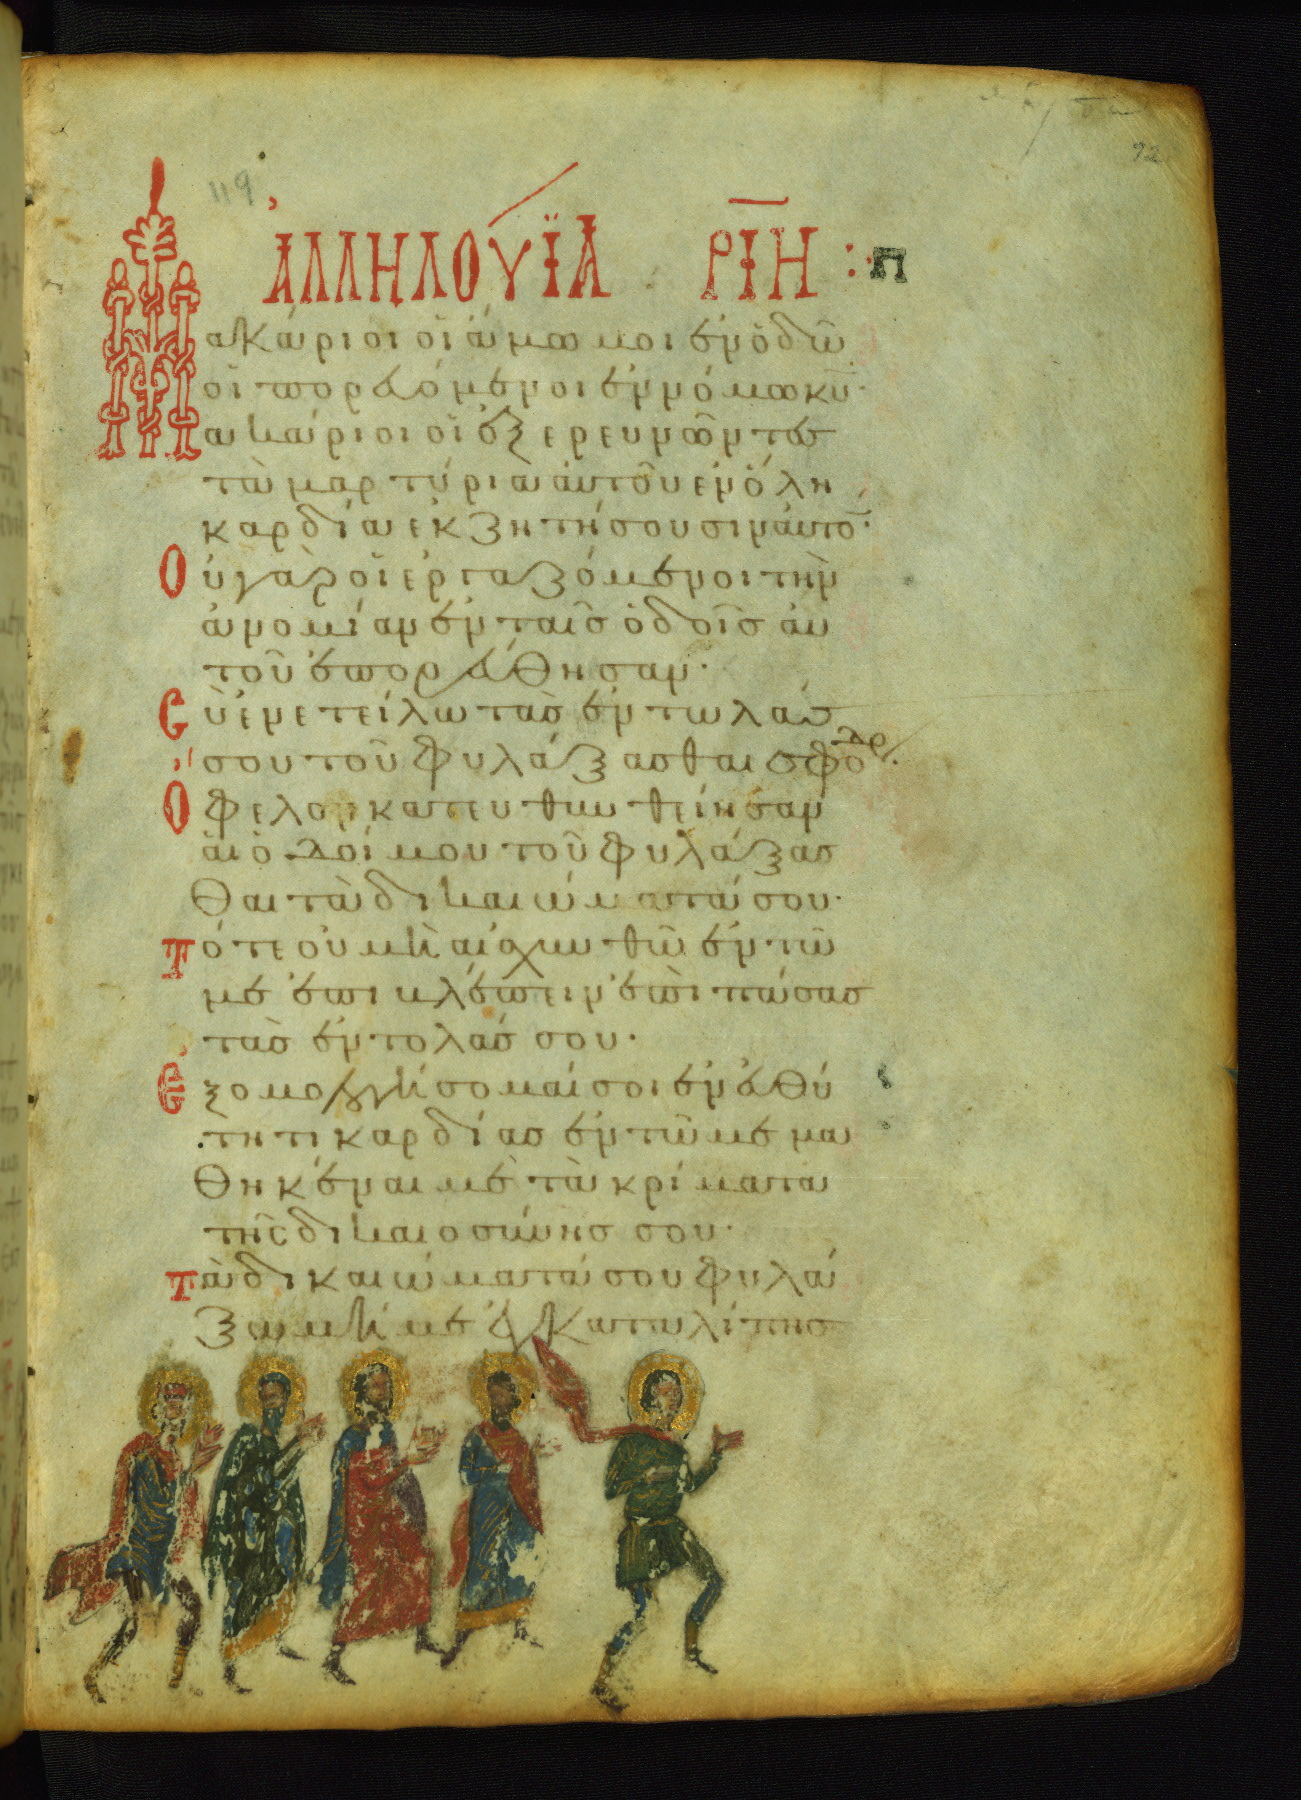 92
119
ἀλληλούϊα ριη : π
Μακάριοι οἱ ἄμωμοι ἐν ὁδῶ
οἱ πορευόμενοι ἐν νόμω κυ·
μακάριοι οἱ ἐξερευνῶντες
τὰ μαρτύρια αὐτοῦ ἐν ὅλη
καρδία ἐκζητήσουσιν αὐτο·
Οὐ γὰρ οἱ εργαζόμενοι τὴν
ἀνομίαν ἐν ταῖς ὁδοῖς αὐ
τοῦ ἐπορεύθησαν·
Σὺ ἐνετείλω τὰσ ἐντωλάσ
σου τοῦ φυλάξασθαι σφόδρ·
Ὄφελον κατευθυνθείησαν
αἱ ὁδοί μου τοῦ φυλάξασ
θαι τὰ δικαιώματά σου·
Τότε οὐ μὴ αἰσχυνθῶ ἐν τῶ
με ἐπιβλέπειν ἐπὶ πάσασ
τὰσ ἐντολάσ σου·
Ἐξομολογήσομαί σοι ἐν εὐθύ
τητι καρδίασ ἐν τῶ με μα
θηκέναι με τὰ κρίματα
τῆς δικαιοσύνησ σου·
Τὰ δικαιώματά σου φυλά
ξω μή με ἐγκαταλίπησ